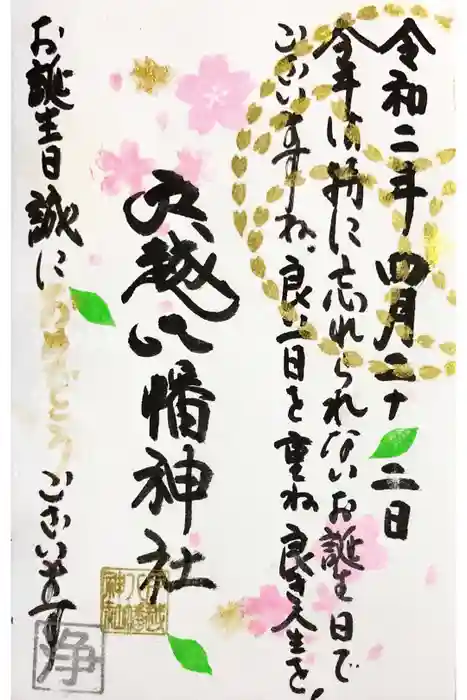 令和二年四月二十二日
今年は特に忘れられないお誕生日で
ございますね。良い日を重ね良き人生を!
戸越八幡神社
お誕生日誠におめでとうございます
戸越八幡神社
浄